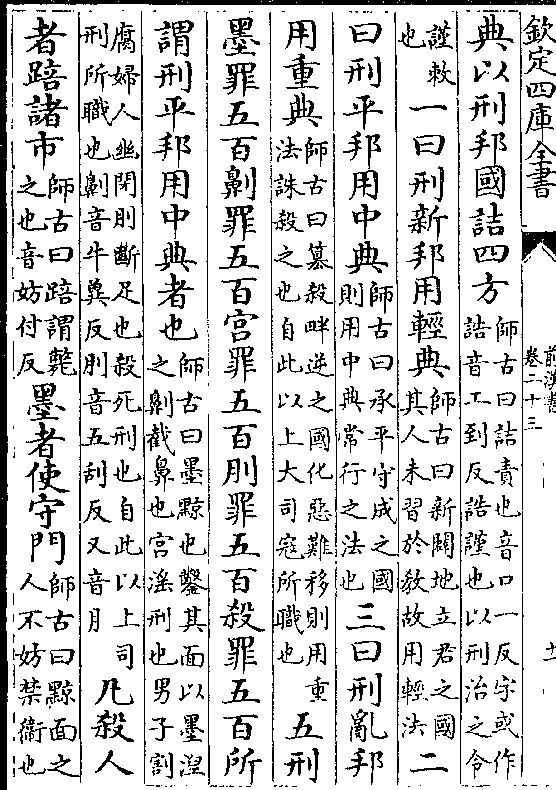 欽定四庫全書
前漢書
卷二十三
典以刑邦國詰四方
師古曰詰責也音口一反字或作
誥音工到反誥謹也以刑治之令
謹敕
也
一曰刑新邦用輕典
師古曰新闢地立君之國
其人未習於敎故用輕法
二
曰刑平邦用中典
師古曰承平守成之國
則用中典常行之法也
三曰刑亂邦
用重典
師古曰篡殺畔逆之國化惡難移則用重
法誅殺之也自此以上大司寇所職也
五刑
墨罪五百劓罪五百宮罪五百刖罪五百殺罪五百所
謂刑平邦用中典者也
師古曰墨黥也鑿其面以墨湼
之劓截鼻也宮淫刑也男子割
腐婦人幽閉刖斷足也殺死刑也自此以上司
刑所職也劓音牛冀反刖音五刮反又音月
凡殺人
者踣諸市
師古曰踣謂斃
之也音妨付反
墨者使守門
師古曰黥面之
人不妨禁衞也